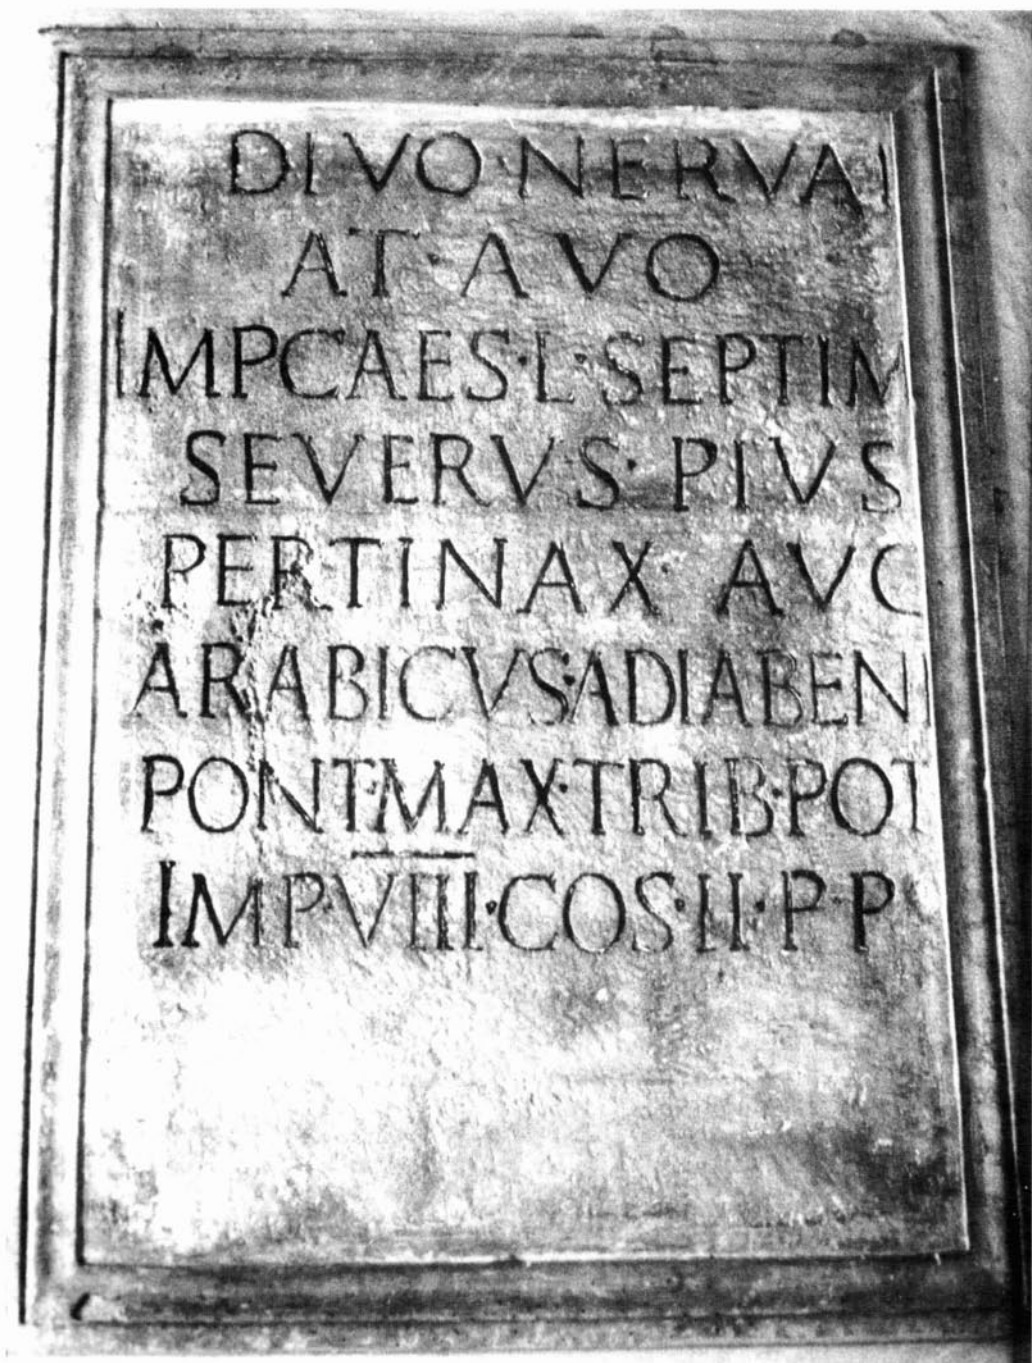 DIVO·NERVAI
AT·AVO
IMPCAES·L·SEPTIM
SEVERVS·PIVS
PERTINAX·AVG
ARABICVS·ADIABENI
PONT·MAX·TRIB·POT
IMP·VIII·COS·II·P·P